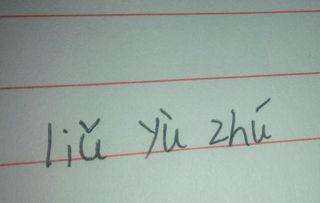 liǔ yù zhú